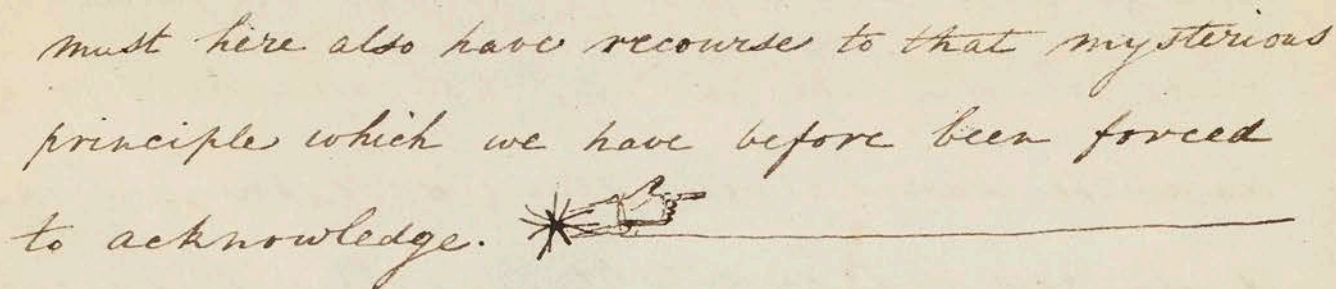 must here also have recourse to that mysterious
principle which we have before been forced
to acknowledge.